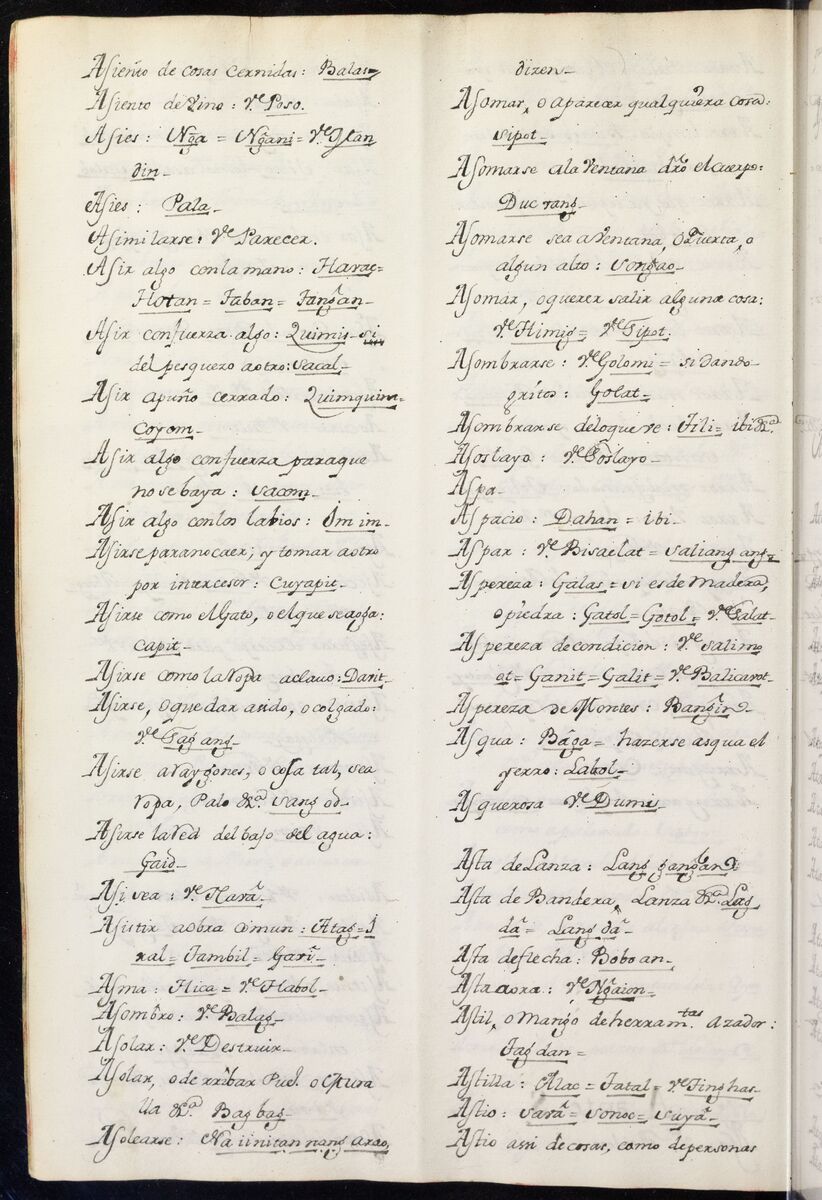 Asiento de cosas cernidas: Balas
Asiento de Vino: Ve Poso.
Asies: Nga = Ngani = Ve Ytan
din
Asies: Pala
Asimilarse: Ve Parecer.
Asir algo conlamano: Harac
Hotan = Taban = Tangan
Asir confuerza algo: Quimis-si
del pesquezo aotro: sacal
Asir apuño cerrado: Quimquim
Coyom
Asir algo confuerza paraque
nosebaya: sacom
Asir algo conlos labios: Imim
Asirse paranocaer, y tomar aotro
por intercesor: Cuyapit
Asirse como elGato, o elque seaoga:
Capit
Asirse como laropa aclavo: Darit
Asirse, oquedar asido, o colgado:
Ve Tagang
Asirse araygones, o cosa tal, sea
ropa, Palo &a. Sangod
Asirse lared del bajo del agua:
Gaid
Asi sea: Ve Nara
Asistir aobra comun: Atag = I
ral = Tambil = Gari
Asma: Hica = Ve Habol
Asombro: Ve Balag
Asolar: Ve Destruir
Asolar, o derribar Pueo. o Espura
lla &a. Bagbag
Asolearse: Na iinitan nang arao,
dizen
Asomar, o aparecer qualquiera cosa:
sipot
Asomarse ala Ventana dro elcuerpo:
Ducrang
Asomarse sea aVentana, o Puerta, o
algun alto: songao
Asomar, oquerer salir alguna cosa:
Ve Himig = Ve Sipot
Asombrarse: Ve Golomi = si dando
gritos: Golat
Asombrarse deloque ve: Tili = ibi &a.
Asoslayo: Ve Soslayo
Aspa
Aspacio: Dahan = ibi
Aspar: Ve Bisaelat = saliangang
Aspereza: Galas = si es de madera,
o piedra: Gatol = Gotol = Ve Galat
Aspereza decondicion: Ve salimo
at = Ganit = Galit = Ve Balicarot
Aspereza de Montes: Bangin
Asqua: Baga = hazerse asqua el
yerro: Labol
Asquerosa Ve Dumis
Asta de Lanza: Langgangan
Asta de Bandera, Lanza &a. Lag
da = Langda
Asta deflecha: Boboan
Asta aora: Ve Ngaion
Astil, o Mango deherramtas. azador:
Tagdan =
Astilla: Alac = Tatal = Ve Tinghas
Astio: sara = sonoc = suya
Astio asi de cosas, como depersonas